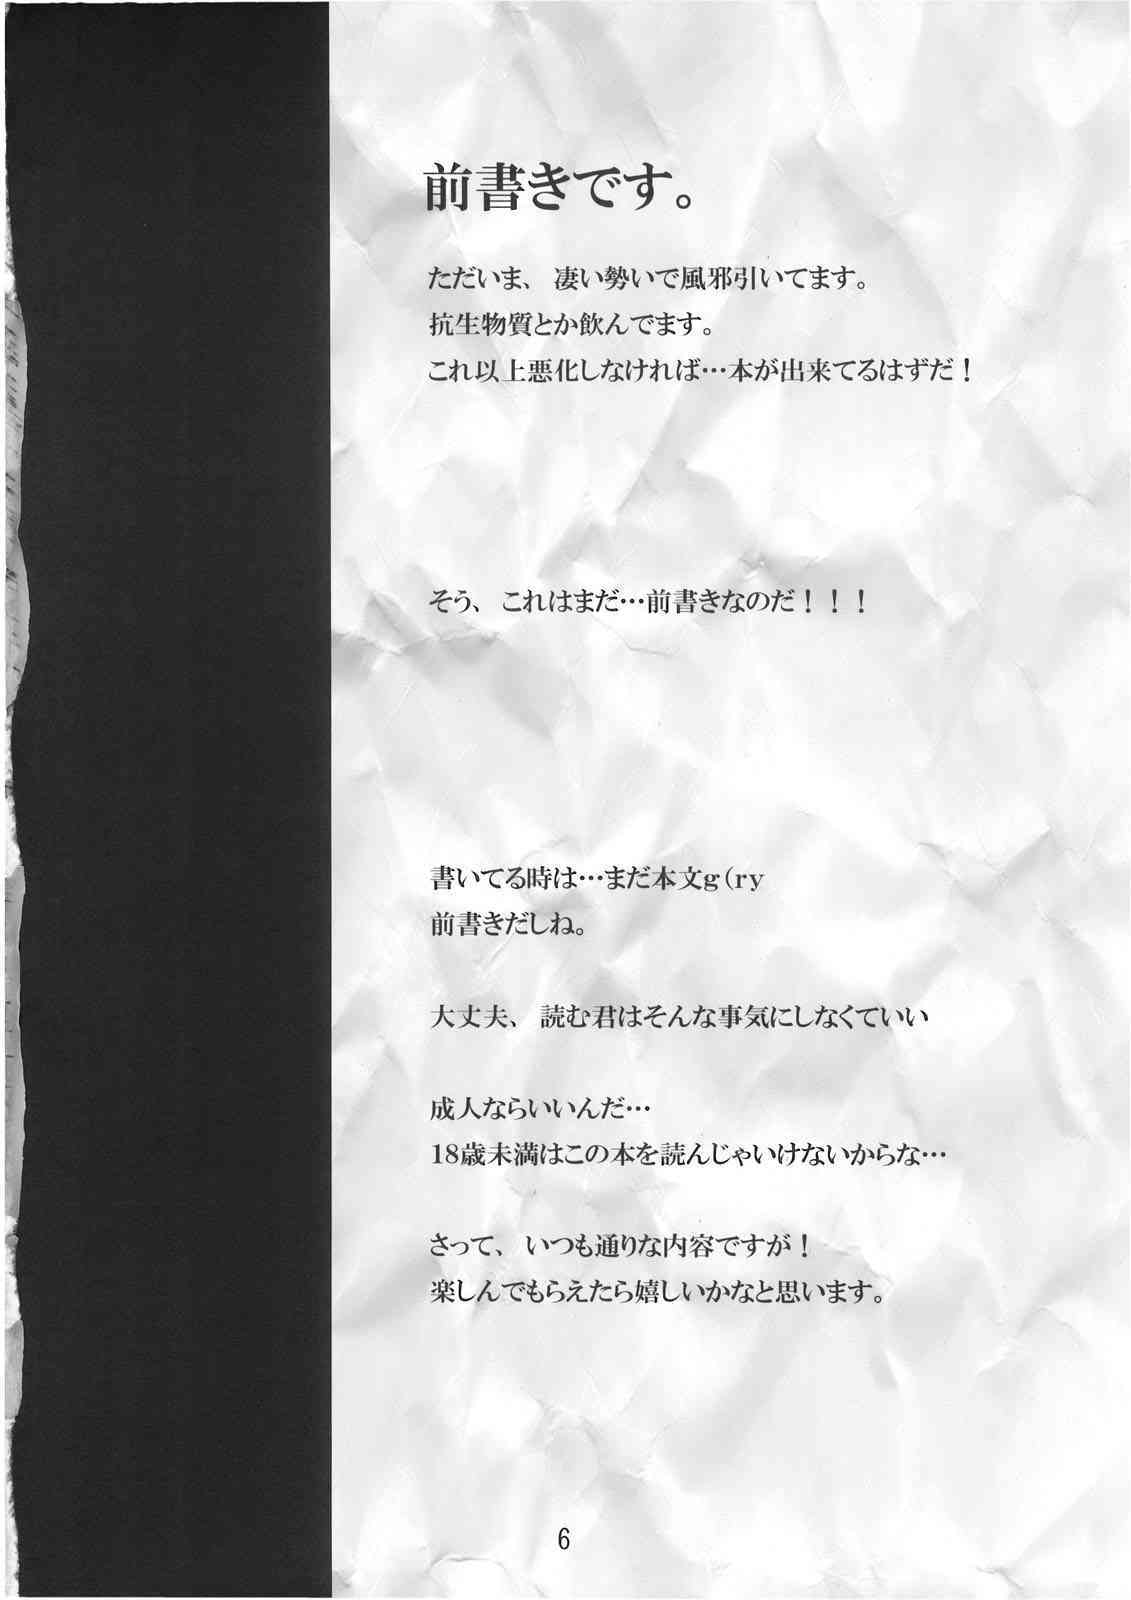 前書きです。
ただいま、凄い勢いで風邪引いてます。
抗生物質とか飲んでます。
これ以上悪化しなければ…本が出来てるはずだ！
そう、これはまだ…前書きなのだ！！！
書いてる時は…まだ本文g(ry
前書きだしね。
大丈夫、読む君はそんな事気にしなくていい
成人ならいいんだ…
18歳未満はこの本を読んじゃいけないからな…
さって、いつも通りな内容ですが！
楽しんでもらえたら嬉しいかなと思います。
6